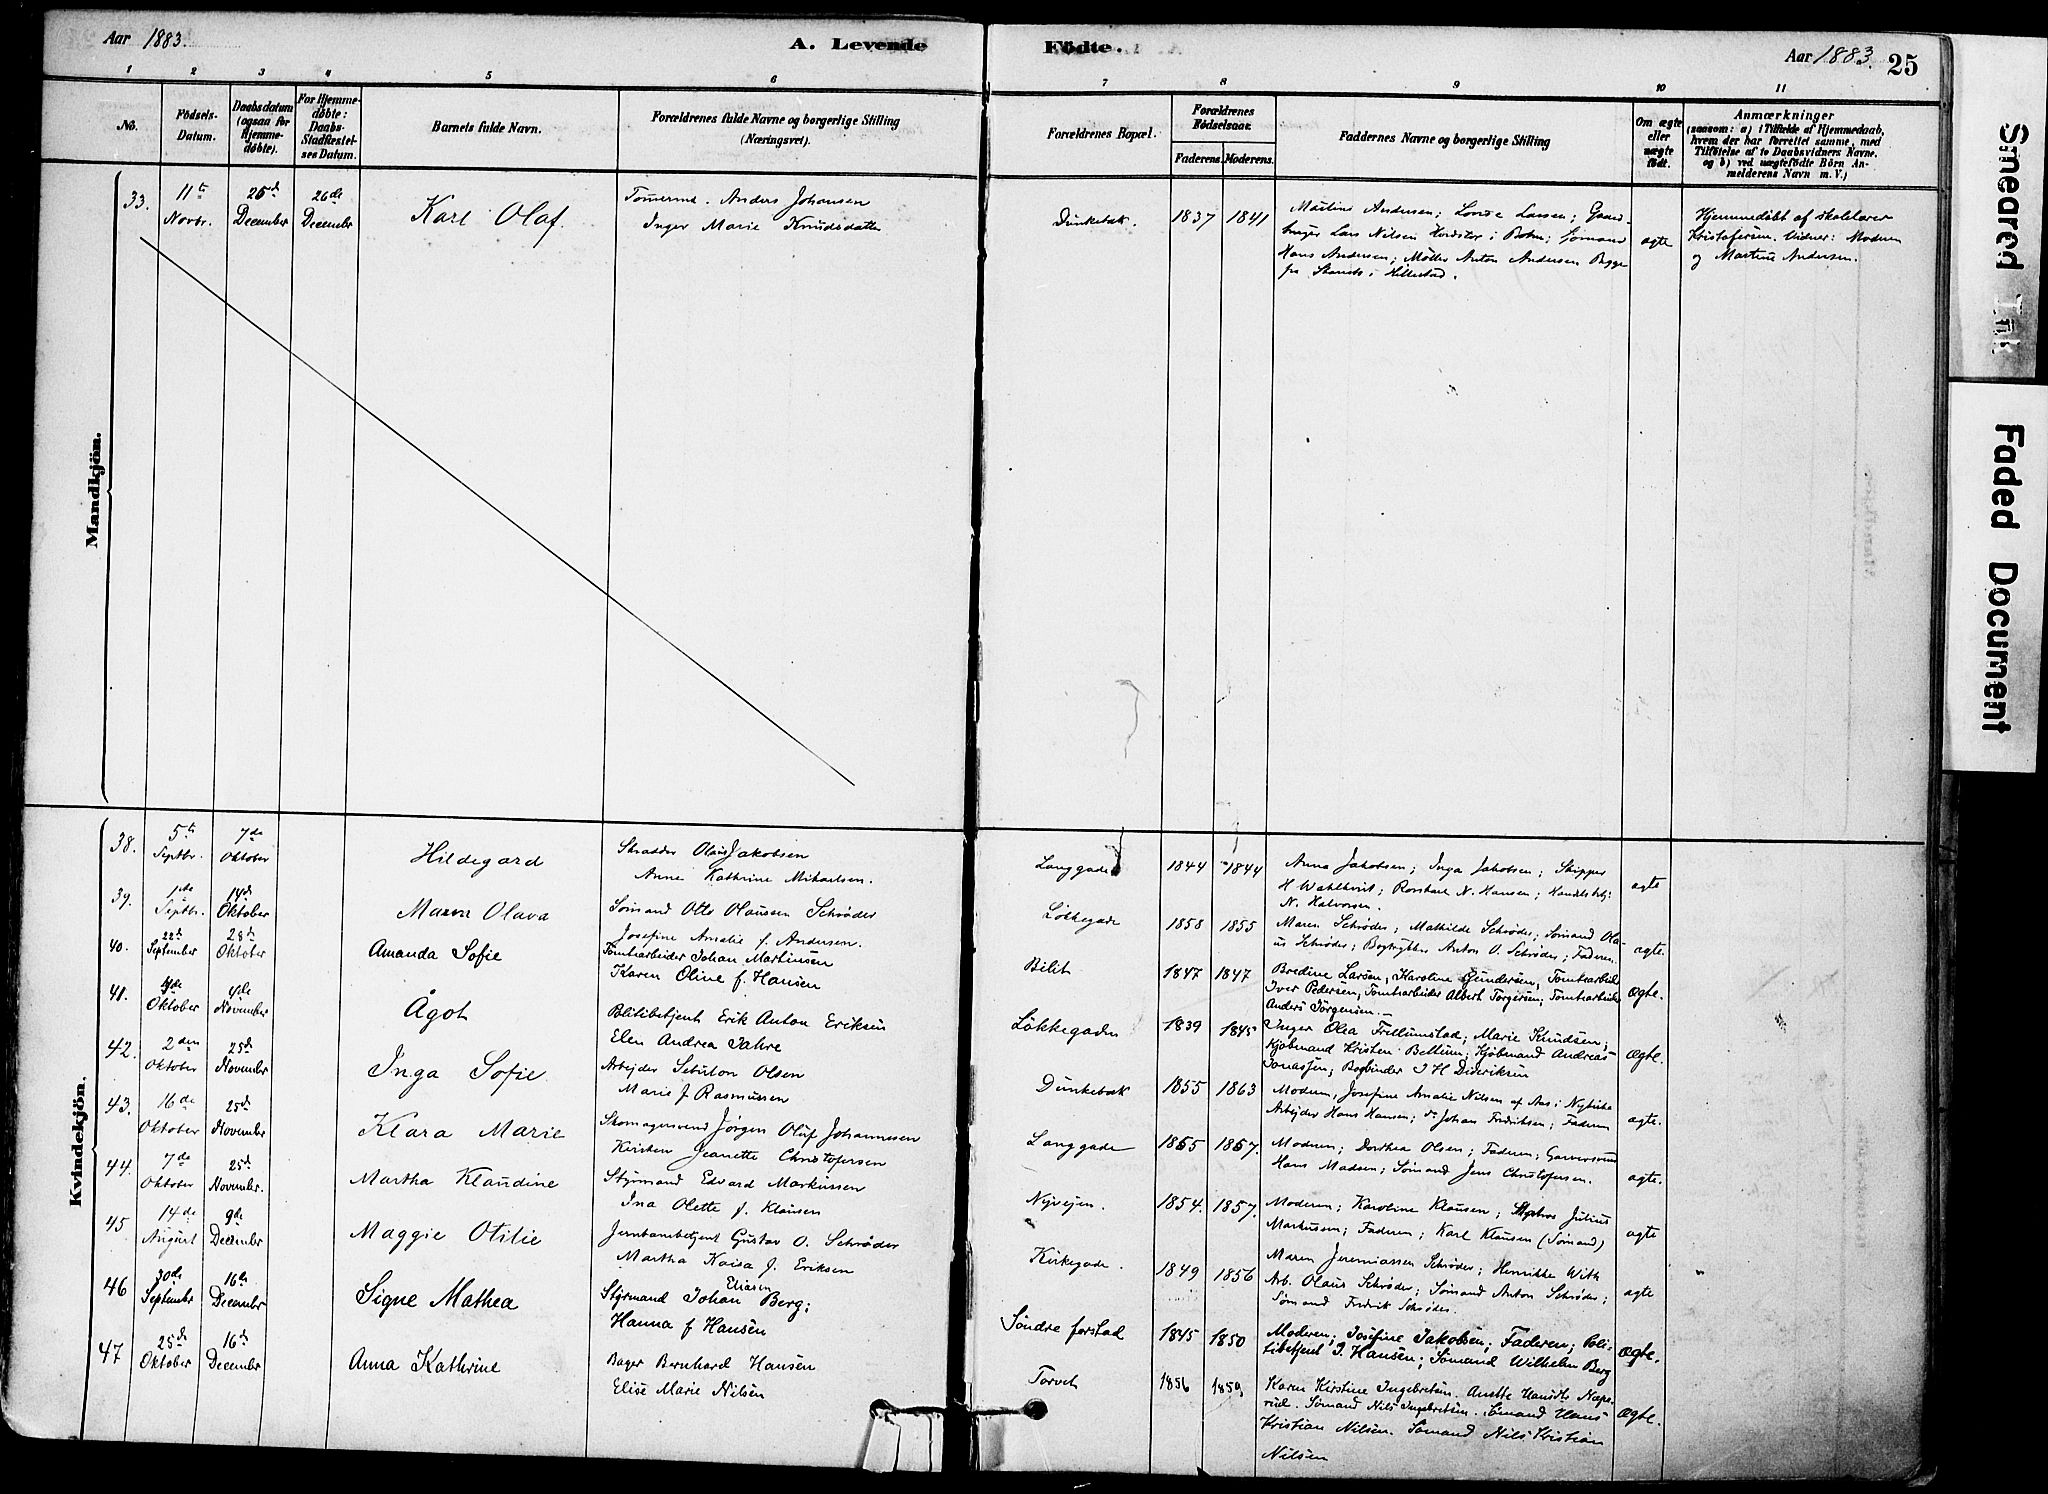 Aar 1883.
A. Levende Födte.
Aar 1883. 25
1 2 3 4 5 6 7 8 9 10 11
No.
Födsels-
Datum.
Daabsdatum
(ogsaa for
Hjemme-
döbte).
For Hjemme-
döbte:
Daabs-
Stadfæstel-
ses Datum.
Barnets fulde Navn.
Forældrenes fulde Navne og borgerlige Stilling
(Næringsvei).
Forældrenes Bopæl.
Forældrenes
Födselsaar.
Faderens. Moderens.
Faddernes Navne og borgerlige Stilling
Om ægte
eller
uægte
födt.
Anmærkninger
(saasom: a) i Tilfælde af Hjemmedaab,
hvem der har forrettet samme, med
Tilföielse af to Daabsvidners Navne,
og b) ved uægtefödte Börn An-
melderens Navn m. V.)
Mandkjön.
33.
11te
Novbr.
26de
December
26de
December
Karl Olaf.
Anders Johansen
Inger Marie Knudsdatter
Dunkebæk.
1837 1841
Martine Andersen; Larsen; Gaard-
bruger Lars Nilsen i Botne; Sømand
Hans Andersen; Møller Anton Andersen Bugge
i Hillestad.
ægte
Hjemmedöbt af skolelærer
Kristofersen. Vidner: Moderen
og Martine Andersen.
Kvindekjön.
38.
5te
Septbr.
7de
Oktober
Hildegard
Skrædder Olaus Jakobsen
Anne Kathrine Mikaelsen.
Langgade
1844 1844
Anna Jakobsen; Inga Jakobsen; Skipper
H Wahlkvist; N. Hansen;
N. Halvorsen.
ægte
39.
1ste
Septbr.
14de
Oktober
Maren Olava
Sømand Otto Olaussen Schrøder
Josefine Amalie f. Andersen.
Løkkegade
1858 1855
Maren Schrøder; Mathilde Schrøder; Sømand Ola-
us Schrøder; Bogtrykker Anton O. Schrøder; Faderen.
ægte.
40.
22de
September
28de
Oktober
Amanda Sofie
Tomtearbeider Johan Martinsen
Karen Oline f. Hansen
Bilit
1847 1847
Bredine Larsen; Karoline Gundersen; Tomtearbeider
Iver Pedersen; Tomtearbeider Albert Torgersen; Tomtearbeider
Anders Jörgensen.
Ægte.
41.
Oktober
4de
November
Ågot
Politibetjent Erik Anton Eriksen
Elen Andrea Jahre
Lökkegaden
1839 1845
Inger Olea Trellumstad; Marie Knudsen;
Kjöbmand Kristen Bettum; Kjöbmand Andreas
Jonassen; Bogbinder J H Dideriksen
Ægte.
42.
2den
Oktober
25de
November
Inga Sofie
Arbejder Olsen
Marie f Rasmussen
Dunkebæk
1855 1863
Moderen, Josefine Amalie Nilsen af Aas i Nykirke
Arbejder Hans Hansen; do Johan Fredriksen; Faderen
ægte.
43.
16de
Oktober
25de
November
Klara Marie
Skomagersvend Jörgen Oluf Johannesen
Kirsten Jeanette Christofersen
Langgade
1855 1857.
Moderen; Dorthea Olsen; Faderen; Garversvend
Hans Madsen; Sømand Jens Christofersen.
ægte.
44.
7de
Oktober
25de
November.
Martha Klaudine
Styrmand Edvard Markussen
Ina Olette f. Klausen
Nyvejen.
1854. 1857.
Moderen; Karoline Klausen; Julius
Markussen; Faderen; Karl Klausen (Sømand)
ægte
45
14de
August
9de
December
Maggie Otilie
Jernbanebetjent Gustav O. Schrøder
Martha Kaisa f. Eriksen
Kirkegade.
1849 1856
Maren Jeremiassen Schrøder; Henrikke With
Arb. Olaus Schrøder; Sømand Anton Schrøder;
Sømand Fredrik Schrøder.
ægte
46
30de
September
16de
December
Signe Mathea
Styrmand Johan Eliasen Berg;
Hanna f Hansen
Söndre forstad
1845 1850
Moderen; Josefine Jakobsen; Faderen; Poli-
tibetjent J. Hansen; Sömand Wilhelm Berg
Ægte.
47
25de
Oktober
16de
December
Anna Kathrine
Bager Bernhard Hansen
Elise Marie Nilsen
Torvet
1856 1859
Karen Kirstine Ingebretsen. Anette Hansdtr Næpe-
rud. Sømand Nils Ingebretsen. Sömand Hans
Kristian Nilsen. Sömand Nils Kristian
Nilsen
Ægte.
Smeared Ink
Faded Document